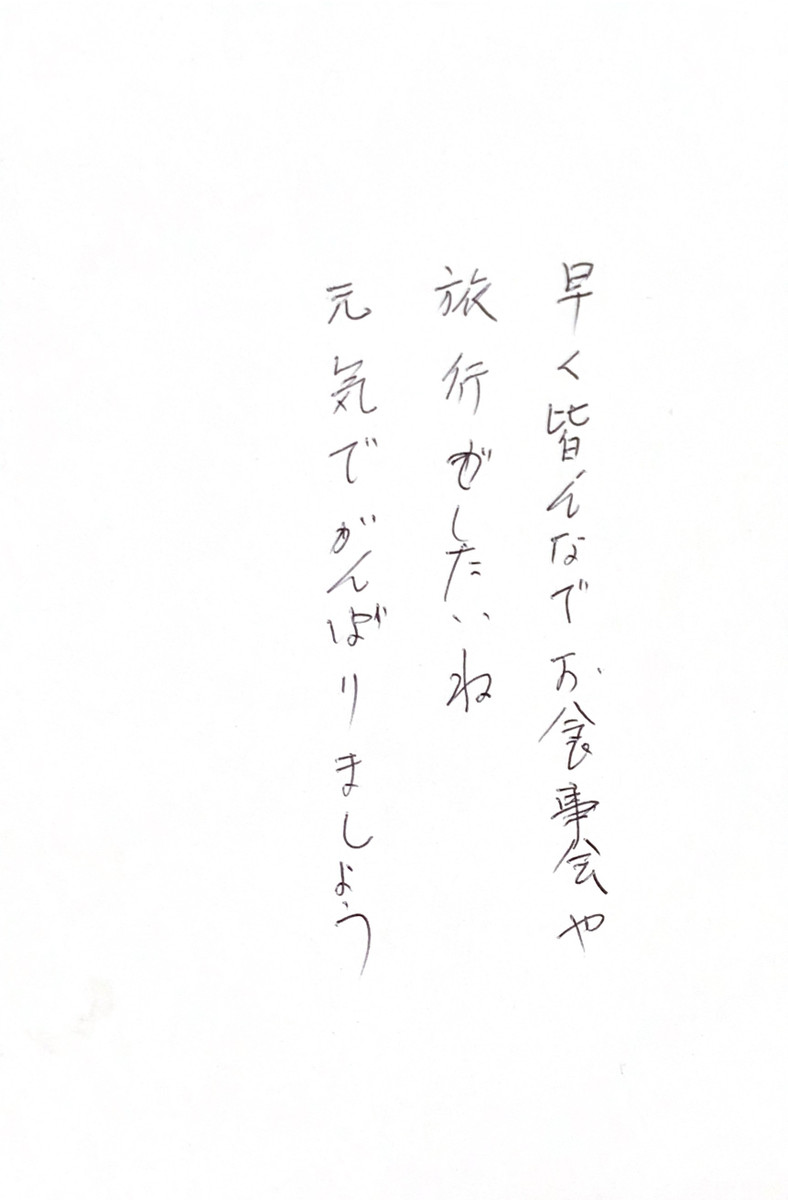 早く皆んなでお食事会や
旅行がしたいね
元気でがんばりましょう